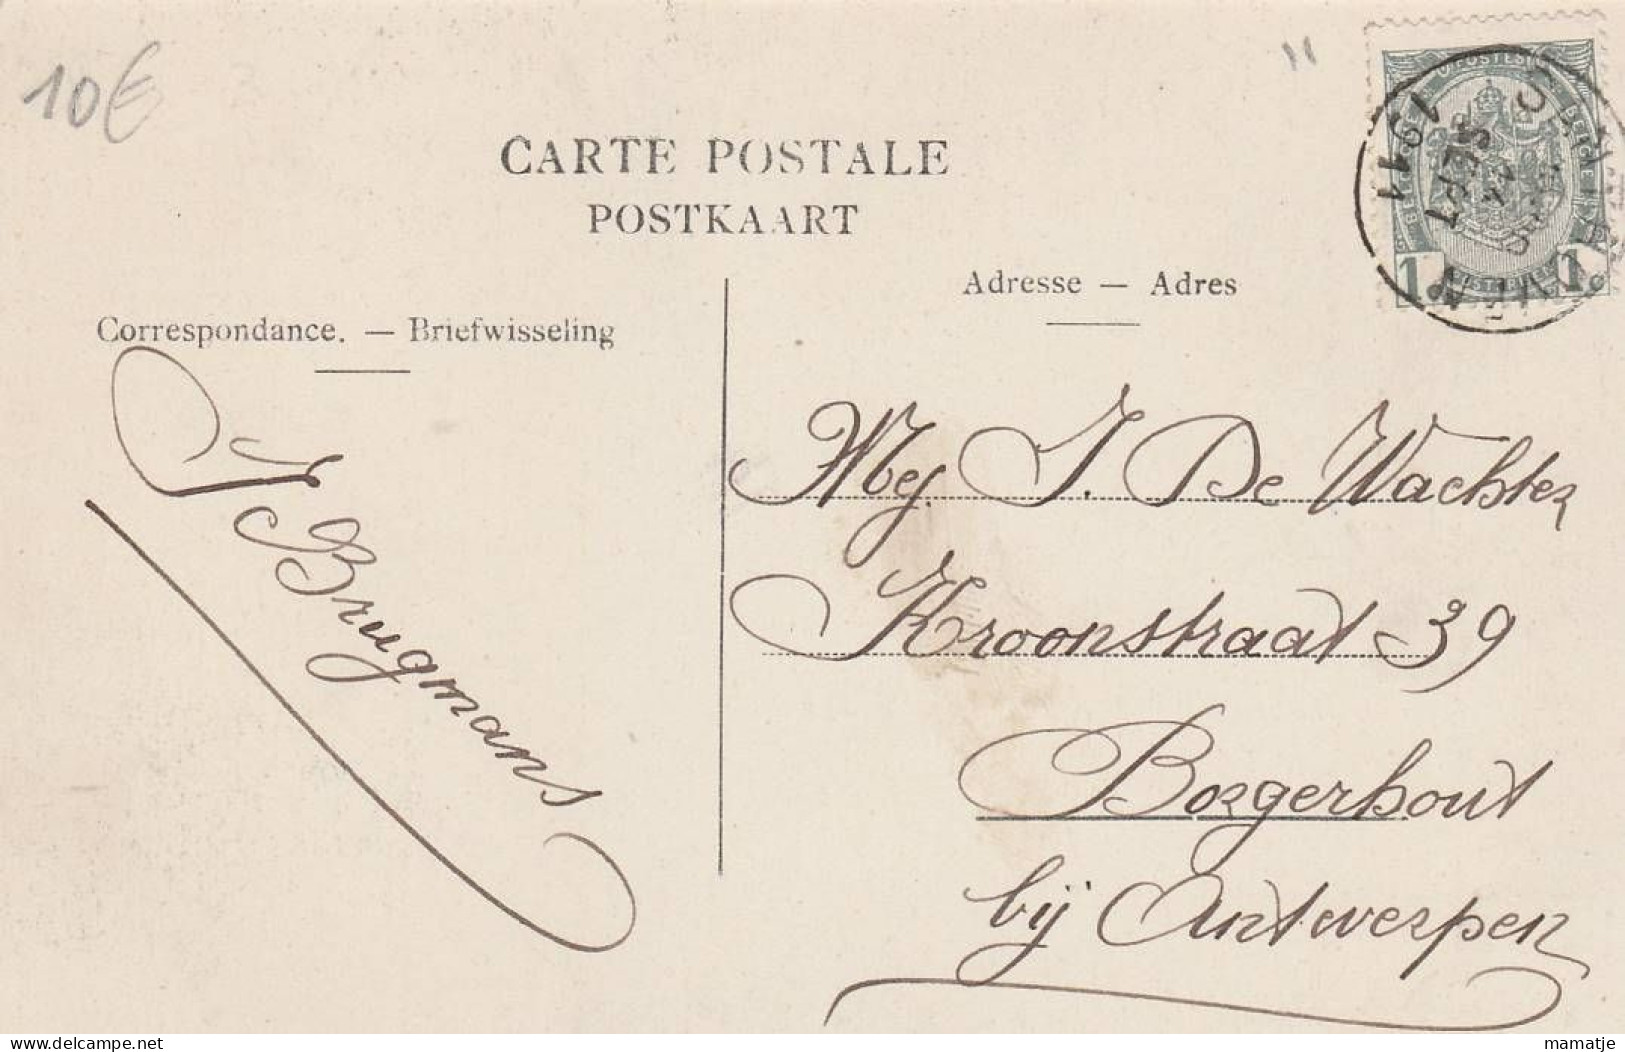 10€
"
CARTE POSTALE
POSTKAART
Adresse — Adres
Correspondance. — Briefwisseling
J Brugmans
Mej. J. De Wachter
Kroonstraat 39
Borgerhout
bij Antwerpen
POSTES
1 1
SEPT
1911
delcampe.net
mamatje